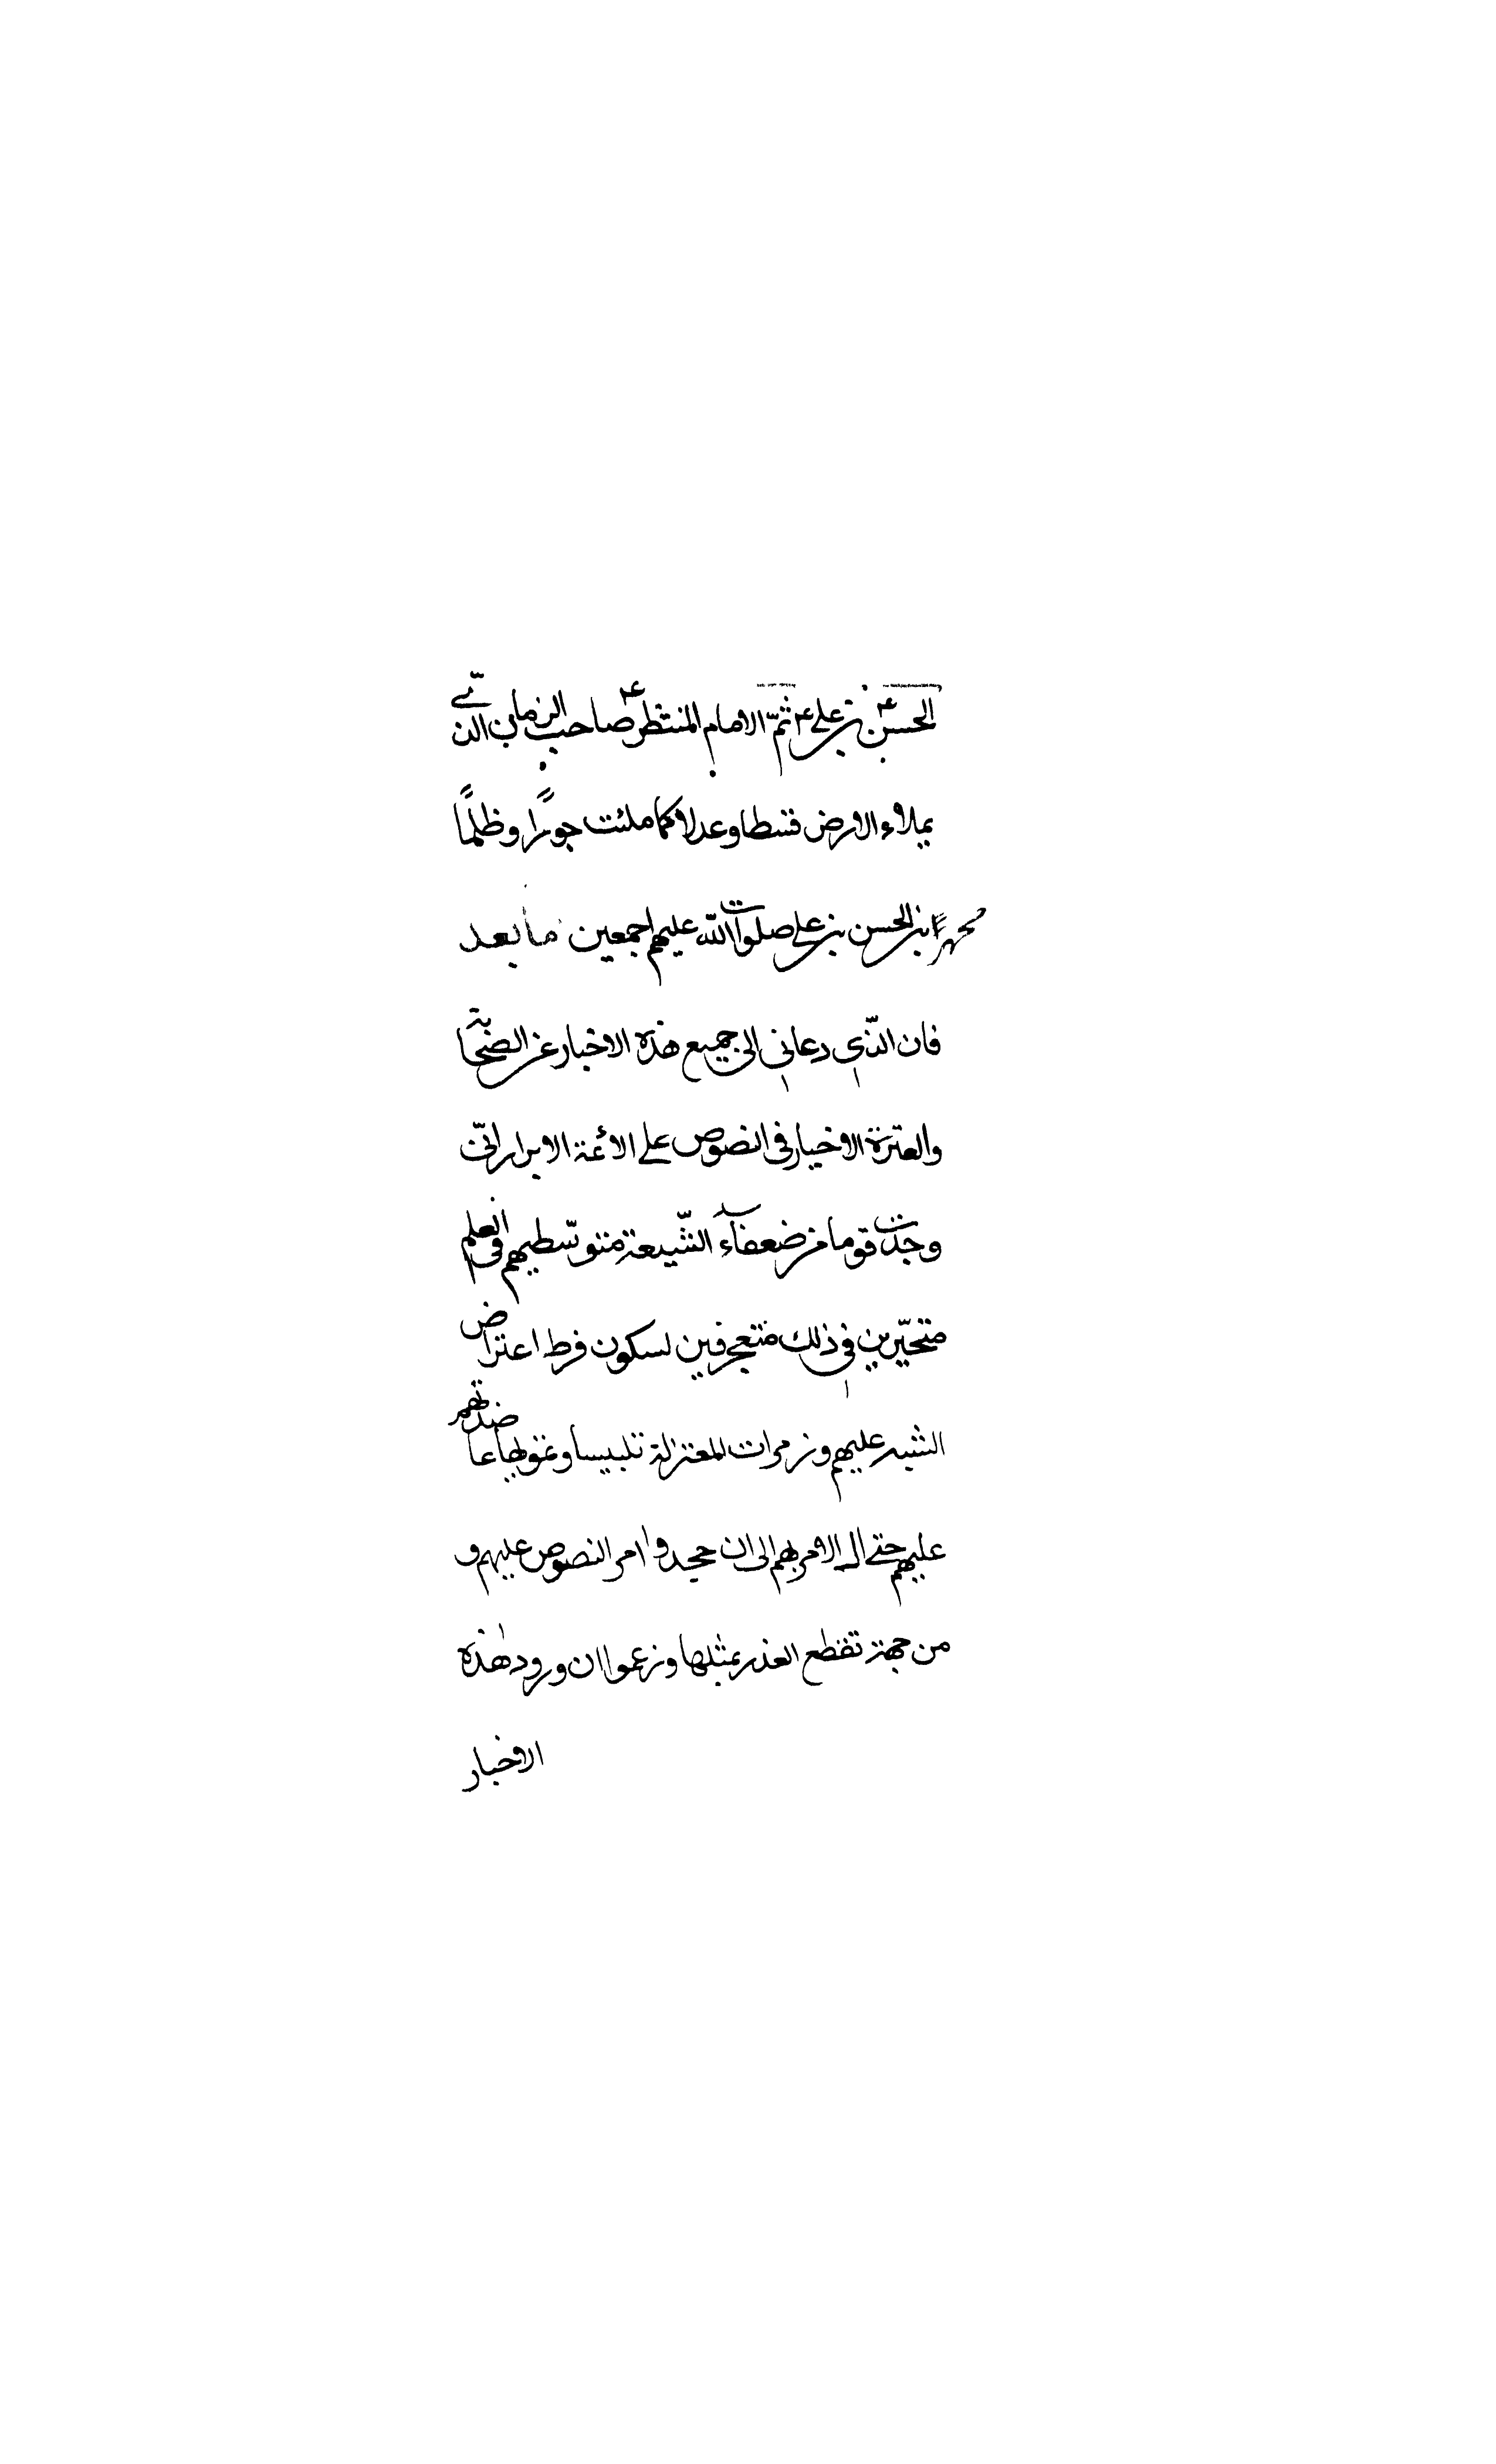 الحسن بن علي ع ثمّ الامام المنتظر ع صاحب الزمان الذّي
يملاء الارض قسطا وعدلا كما ملئت جورًا وظلمًا
محمد بن الحسن بن علي صلوات اللّه عليهم اجمعين ما بعد
فان الّذي دعاني الى جميع هذه الاخبار عن الصّحابة
والعترة الاخيار في النصوص على الائمة الابرار انّي
وجدت قوما من ضعفآء الشّيعة متوسّطيهم في العلم
متحيّرين في ذلك متعجرفين لسكون فرط اعتراض
الشبه عليهم وزمرات المعتزلة تلبيسا وتمويها عاضدتهم
عليهم حتى ال الامر بهم الى ان جحدوا امر النصوص عليهم و
من جهة تقطع العذر بمثلها وزعموا ان ورود هذه
الاخبار